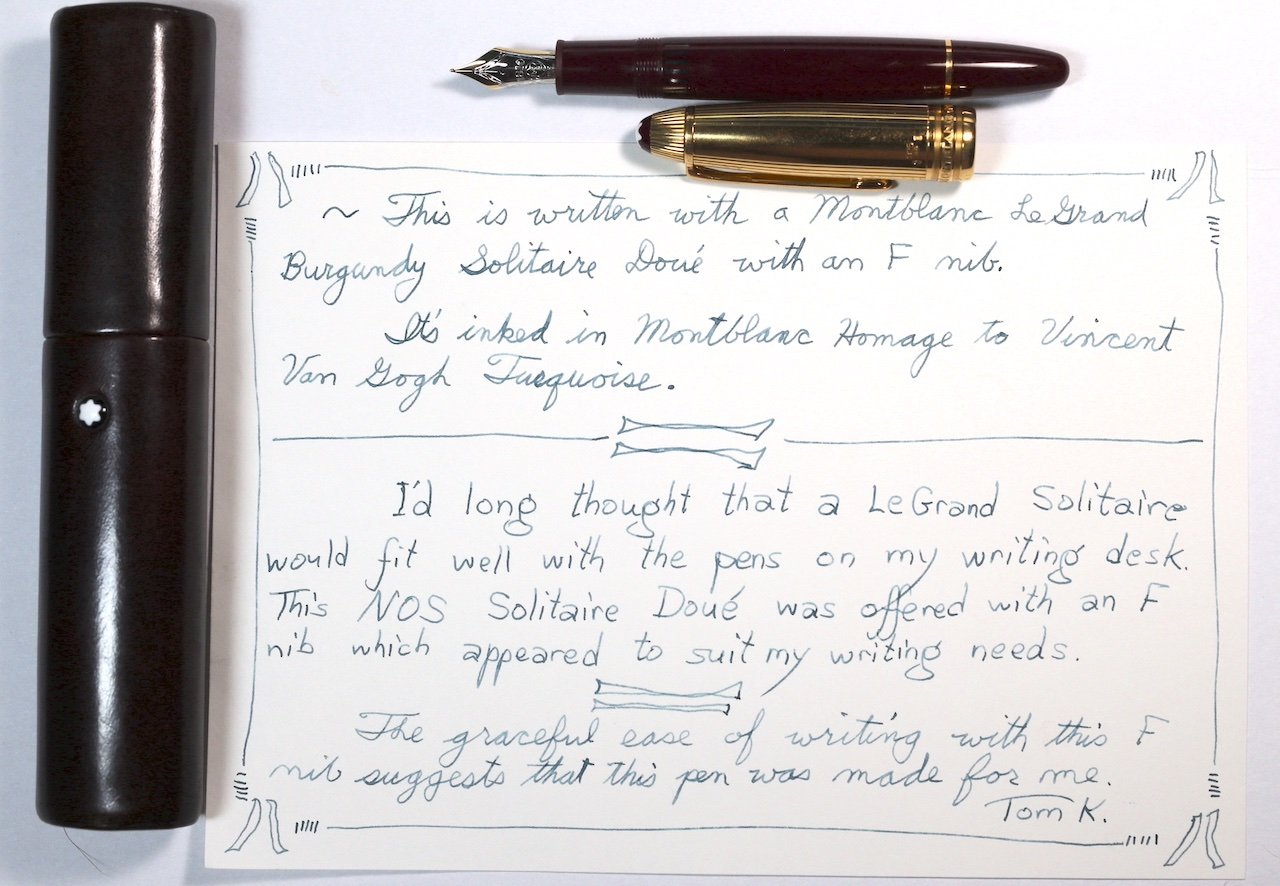 ~ This is written with a Montblanc LeGrand
Burgundy Solitaire Doué with an F nib.
It's inked in Montblanc Homage to Vincent
Van Gogh Turquoise.
I'd long thought that a LeGrand Solitaire
would fit well with the pens on my writing desk.
This NOS Solitaire Doué was offered with an F
nib which appeared to suit my writing needs.
The graceful ease of writing with this F
nib suggests that this pen was made for me.
Tom K.